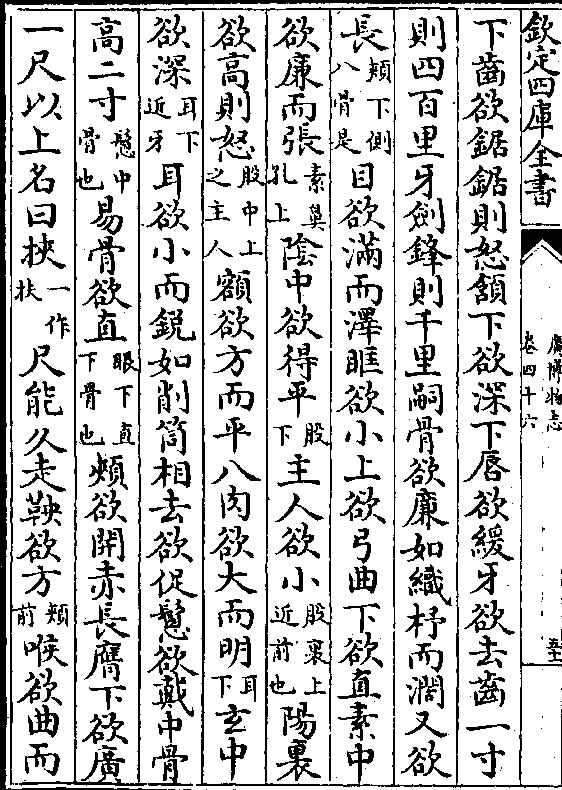 欽定四庫全書
廣博物志
卷四十六
下齒欲鋸鋸則怒頷下欲深下唇欲緩牙欲去齒一寸
則四百里牙劍鋒則千里嗣骨欲廉如織杼而濶又欲
長頰下側八骨是目欲滿而澤眶欲小上欲弓曲下欲直素中
欲廉而張素鼻孔上陰中欲得平股下主人欲小股裏上近前也陽裏
欲高則怒股中上之主人額欲方而平八肉欲大而明耳下玄中
欲深耳下近牙耳欲小而銳如削筒相去欲促鬉欲戴中骨
高二寸鬉中骨也易骨欲直眼下直下骨也頰欲開赤長膺下欲廣
一尺以上名曰挾一作扶尺能久走鞅欲方頰前喉欲曲而